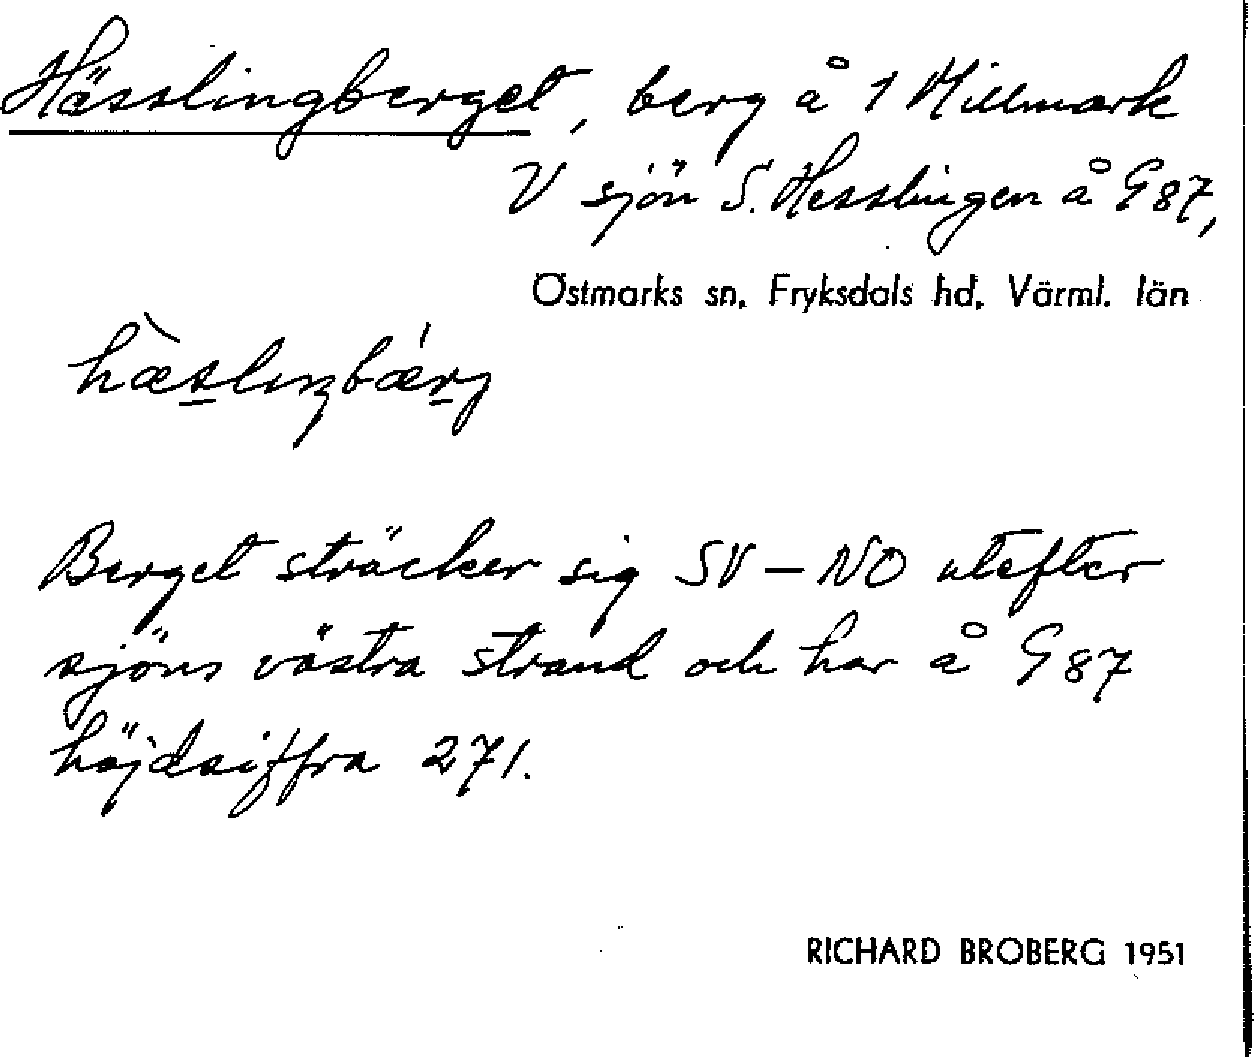 Hässlingberget, berg å 1 Millmark
V sjön S. Hesslingen å G 87,
Östmarks sn, Fryksdals hd, Värml. län
Berget sträcker sig SV – NO utefter
sjöns västra strand och har å G 87
höjdsiffra 271.
RICHARD BROBERG 1951